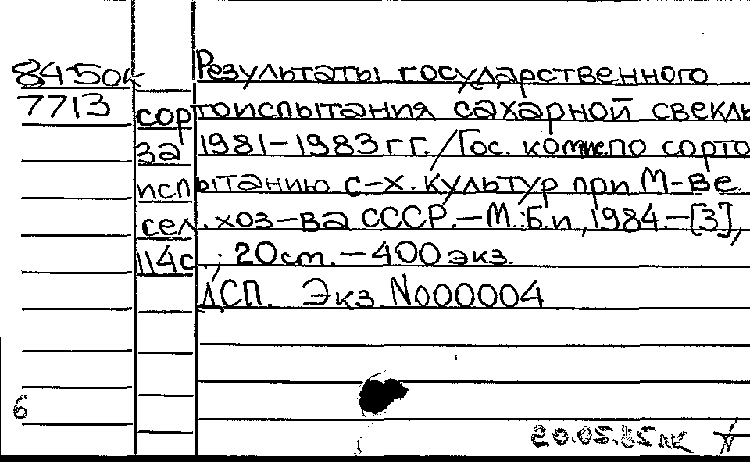 8450к Результаты государственного
7713 сортоиспытания сахарной свеклы
за 1981-1983 гг./Гос. комис по сорто
испытанию с-х. культур при М-ве
сел. хоз-ва СССР.-М.: Б.и, 1984.-[3],
114с.; 20 ст. - 400 экз.
ДСП. Экз. №000004
6
20.05.85